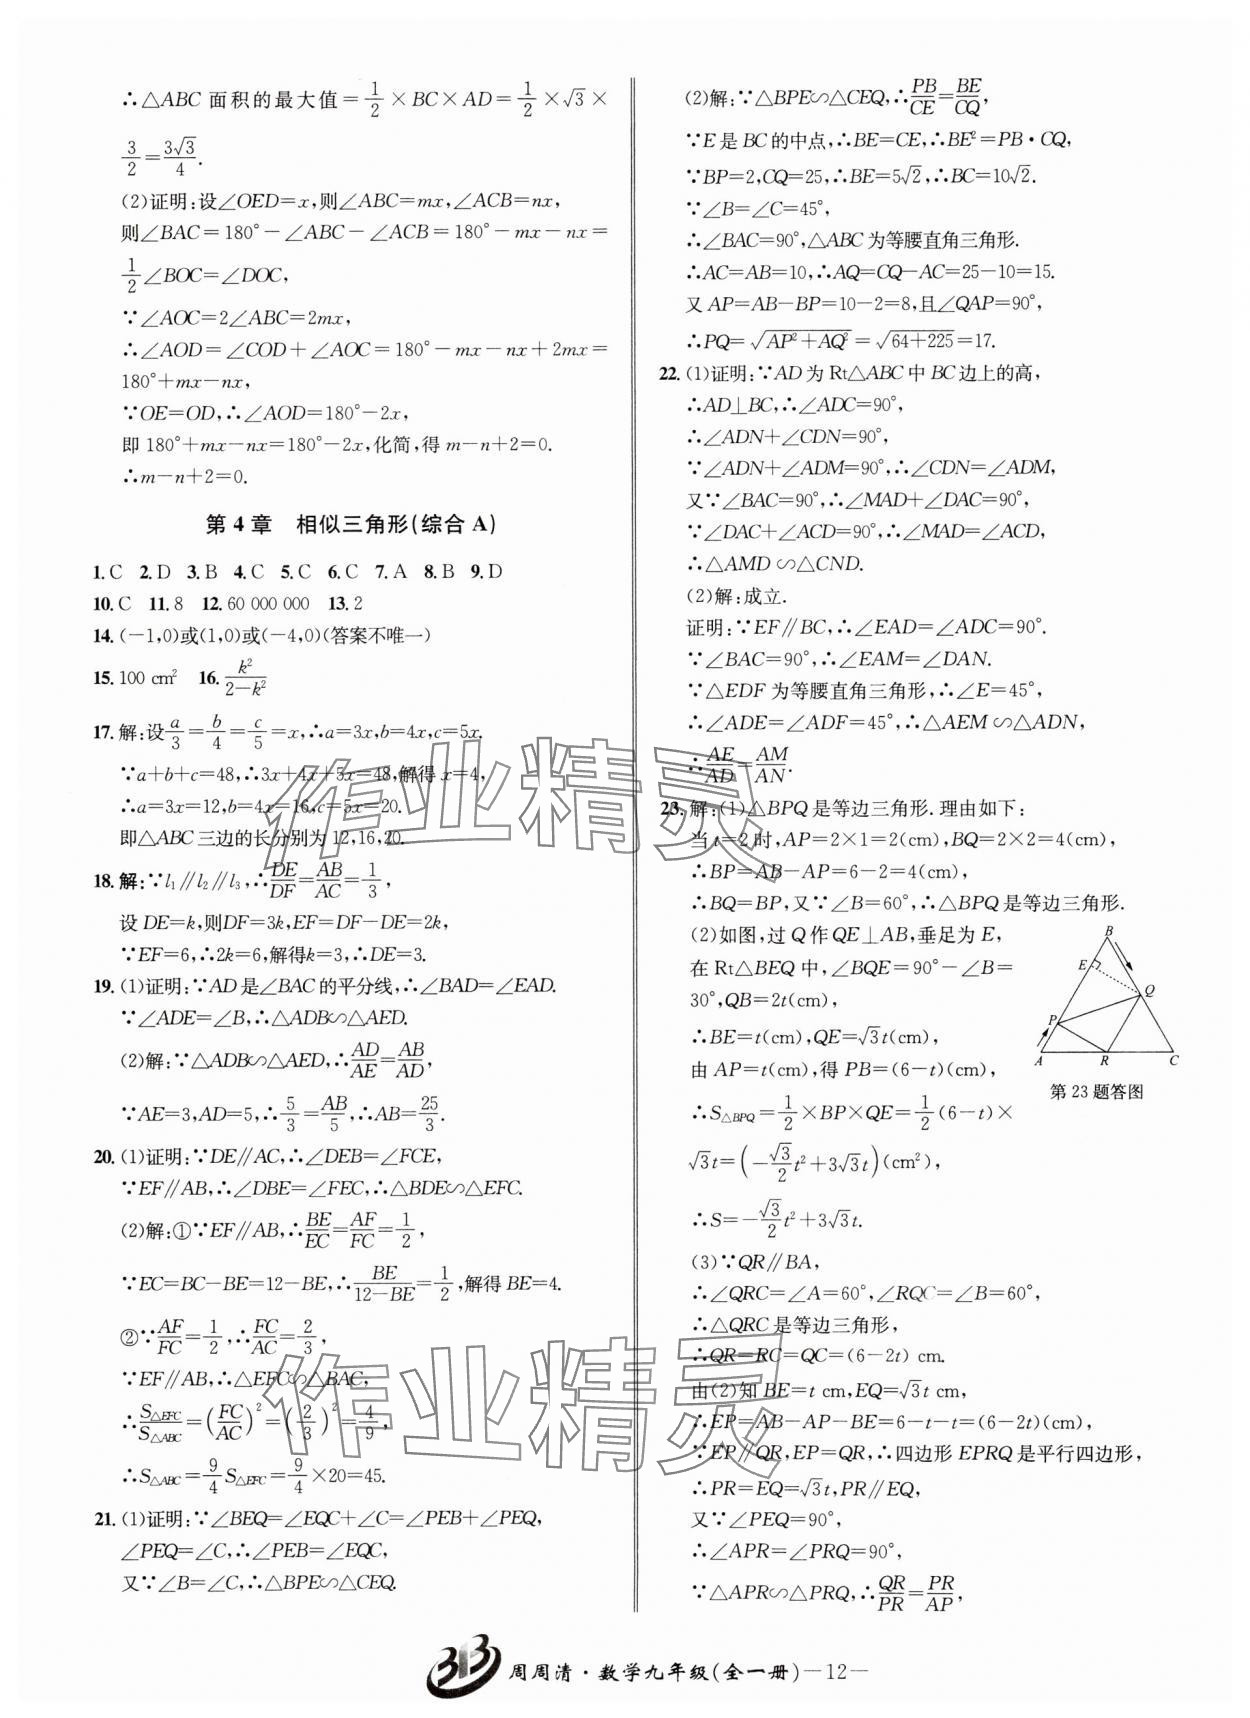 ∴△ABC 面积的最大值=1/2×BC×AD=1/2×√3×
3/2=3√3/4.
(2)证明:设∠OED=x,则∠ABC=mx,∠ACB=nx,
则∠BAC=180°-∠ABC-∠ACB=180°-mx-nx=
1/2∠BOC=∠DOC,
∵∠AOC=2∠ABC=2mx,
∴∠AOD=∠COD+∠AOC=180°-mx-nx+2mx=
180°+mx-nx,
∵OE=OD,∴∠AOD=180°-2x,
即 180°+mx-nx=180°-2x,化简,得 m-n+2=0.
∴m-n+2=0.
第 4 章 相似三角形(综合 A)
1.C 2.D 3.B 4.C 5.C 6.C 7.A 8.B 9.D
10.C 11.8 12.60 000 000 13.2
14.(-1,0)或(1,0)或(-4,0)(答案不唯一)
15.100 cm² 16.k²/(2-k²)
17.解:设a/3=b/4=c/5=x,∴a=3x,b=4x,c=5x.
∵a+b+c=48,∴3x+4x+5x=48,解得 x=4,
∴a=3x=12,b=4x=16,c=5x=20.
即△ABC 三边的长分别为 12,16,20.
18.解:∵l₁∥l₂∥l₃,∴DE/DF=AB/AC=1/3,
设 DE=k,则DF=3k,EF=DF-DE=2k,
∵EF=6,∴2k=6,解得k=3,∴DE=3.
19.(1)证明:∵AD 是∠BAC 的平分线,∴∠BAD=∠EAD.
∵∠ADE=∠B,∴△ADB∽△AED.
(2)解:∵△ADB∽△AED,∴AD/AE=AB/AD,
∵AE=3,AD=5,∴5/3=AB/5,∴AB=25/3.
20.(1)证明:∵DE∥AC,∴∠DEB=∠FCE,
∵EF∥AB,∴∠DBE=∠FEC,∴△BDE∽△EFC.
(2)解:①∵EF∥AB,∴BE/EC=AF/FC=1/2,
∵EC=BC-BE=12-BE,∴BE/(12-BE)=1/2,解得 BE=4.
②∵AF/FC=1/2,∴FC/AC=2/3,
∵EF∥AB,∴△EFC∽△BAC,
∴S△EFC/S△ABC=(FC/AC)²=(2/3)²=4/9,
∴S△ABC=9/4S△EFC=9/4×20=45.
21.(1)证明:∵∠BEQ=∠EQC+∠C=∠PEB+∠PEQ,
∠PEQ=∠C,∴∠PEB=∠EQC,
又∵∠B=∠C,∴△BPE∽△CEQ.
(2)解:∵△BPE∽△CEQ,∴PB/CE=BE/CQ,
∵E 是 BC 的中点,∴BE=CE,∴BE²=PB·CQ,
∵BP=2,CQ=25,∴BE=5√2,∴BC=10√2.
∵∠B=∠C=45°,
∴∠BAC=90°,△ABC 为等腰直角三角形.
∴AC=AB=10,∴AQ=CQ-AC=25-10=15.
又 AP=AB-BP=10-2=8,且∠QAP=90°,
∴PQ=√(AP²+AQ²)=√(64+225)=17.
22.(1)证明:∵AD 为 Rt△ABC 中 BC 边上的高,
∴AD⊥BC,∴∠ADC=90°,
∴∠ADN+∠CDN=90°,
∵∠ADN+∠ADM=90°,∴∠CDN=∠ADM,
又∵∠BAC=90°,∴∠MAD+∠DAC=90°,
∵∠DAC+∠ACD=90°,∴∠MAD=∠ACD,
∴△AMD∽△CND.
(2)解:成立.
证明:∵EF∥BC,∴∠EAD=∠ADC=90°.
∵∠BAC=90°,∴∠EAM=∠DAN.
∵△EDF 为等腰直角三角形,∴∠E=45°,
∴∠ADE=∠ADF=45°,∴△AEM∽△ADN,
∵AE/AD=AM/AN.
23.解:(1)△BPQ 是等边三角形. 理由如下:
当 t=2 时,AP=2×1=2(cm),BQ=2×2=4(cm),
∴BP=AB-AP=6-2=4(cm),
∴BQ=BP,又∵∠B=60°,∴△BPQ 是等边三角形.
(2)如图,过 Q 作 QE⊥AB,垂足为 E,
在 Rt△BEQ 中,∠BQE=90°-∠B=
30°,QB=2t(cm),
∴BE=t(cm),QE=√3t(cm),
由 AP=t(cm),得 PB=(6-t)(cm),
∴S△BPQ=1/2×BP×QE=1/2(6-t)×
√3t=(-√3/2t²+3√3t)(cm²),
∴S=-√3/2t²+3√3t.
B
E
Q
P
A R C
第 23 题答图
(3)∵QR∥BA,
∴∠QRC=∠A=60°,∠RQC=∠B=60°,
∴△QRC 是等边三角形,
∴QR=RC=QC=(6-2t) cm.
由(2)知 BE=t cm,EQ=√3t cm,
∴EP=AB-AP-BE=6-t-t=(6-2t)(cm),
∵EP∥QR,EP=QR,∴四边形 EPRQ 是平行四边形,
∴PR=EQ=√3t,PR∥EQ,
又∵∠PEQ=90°,
∴∠APR=∠PRQ=90°,
∵△APR∽△PRQ,∴QR/PR=PR/AP,
周周清·数学九年级(全一册)—12—
作业精灵
作业精灵